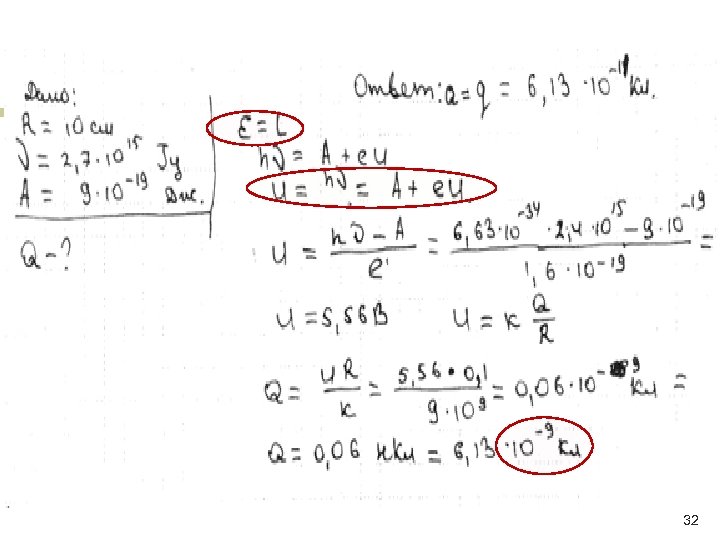 Дано:
R = 10 см
ν = 2,7·10¹⁵ Гц
A = 9·10⁻¹⁹ Дж.
Q - ?
Ответ: Q = q = 6,13·10⁻¹¹ Кл.
ε = L
hν = A + eU
U = hν = A + eU
U = (hν - A)/e = (6,63·10⁻³⁴ · 2,4·10¹⁵ - 9·10⁻¹⁹)/(1,6·10⁻¹⁹) =
U = 5,56 В U = к Q/R
Q = UR/к = (5,56 · 0,1)/(9·10⁹) = 0,06·10⁻⁹ Кл =
Q = 0,06 нКл = 6,13·10⁻⁹ Кл
32